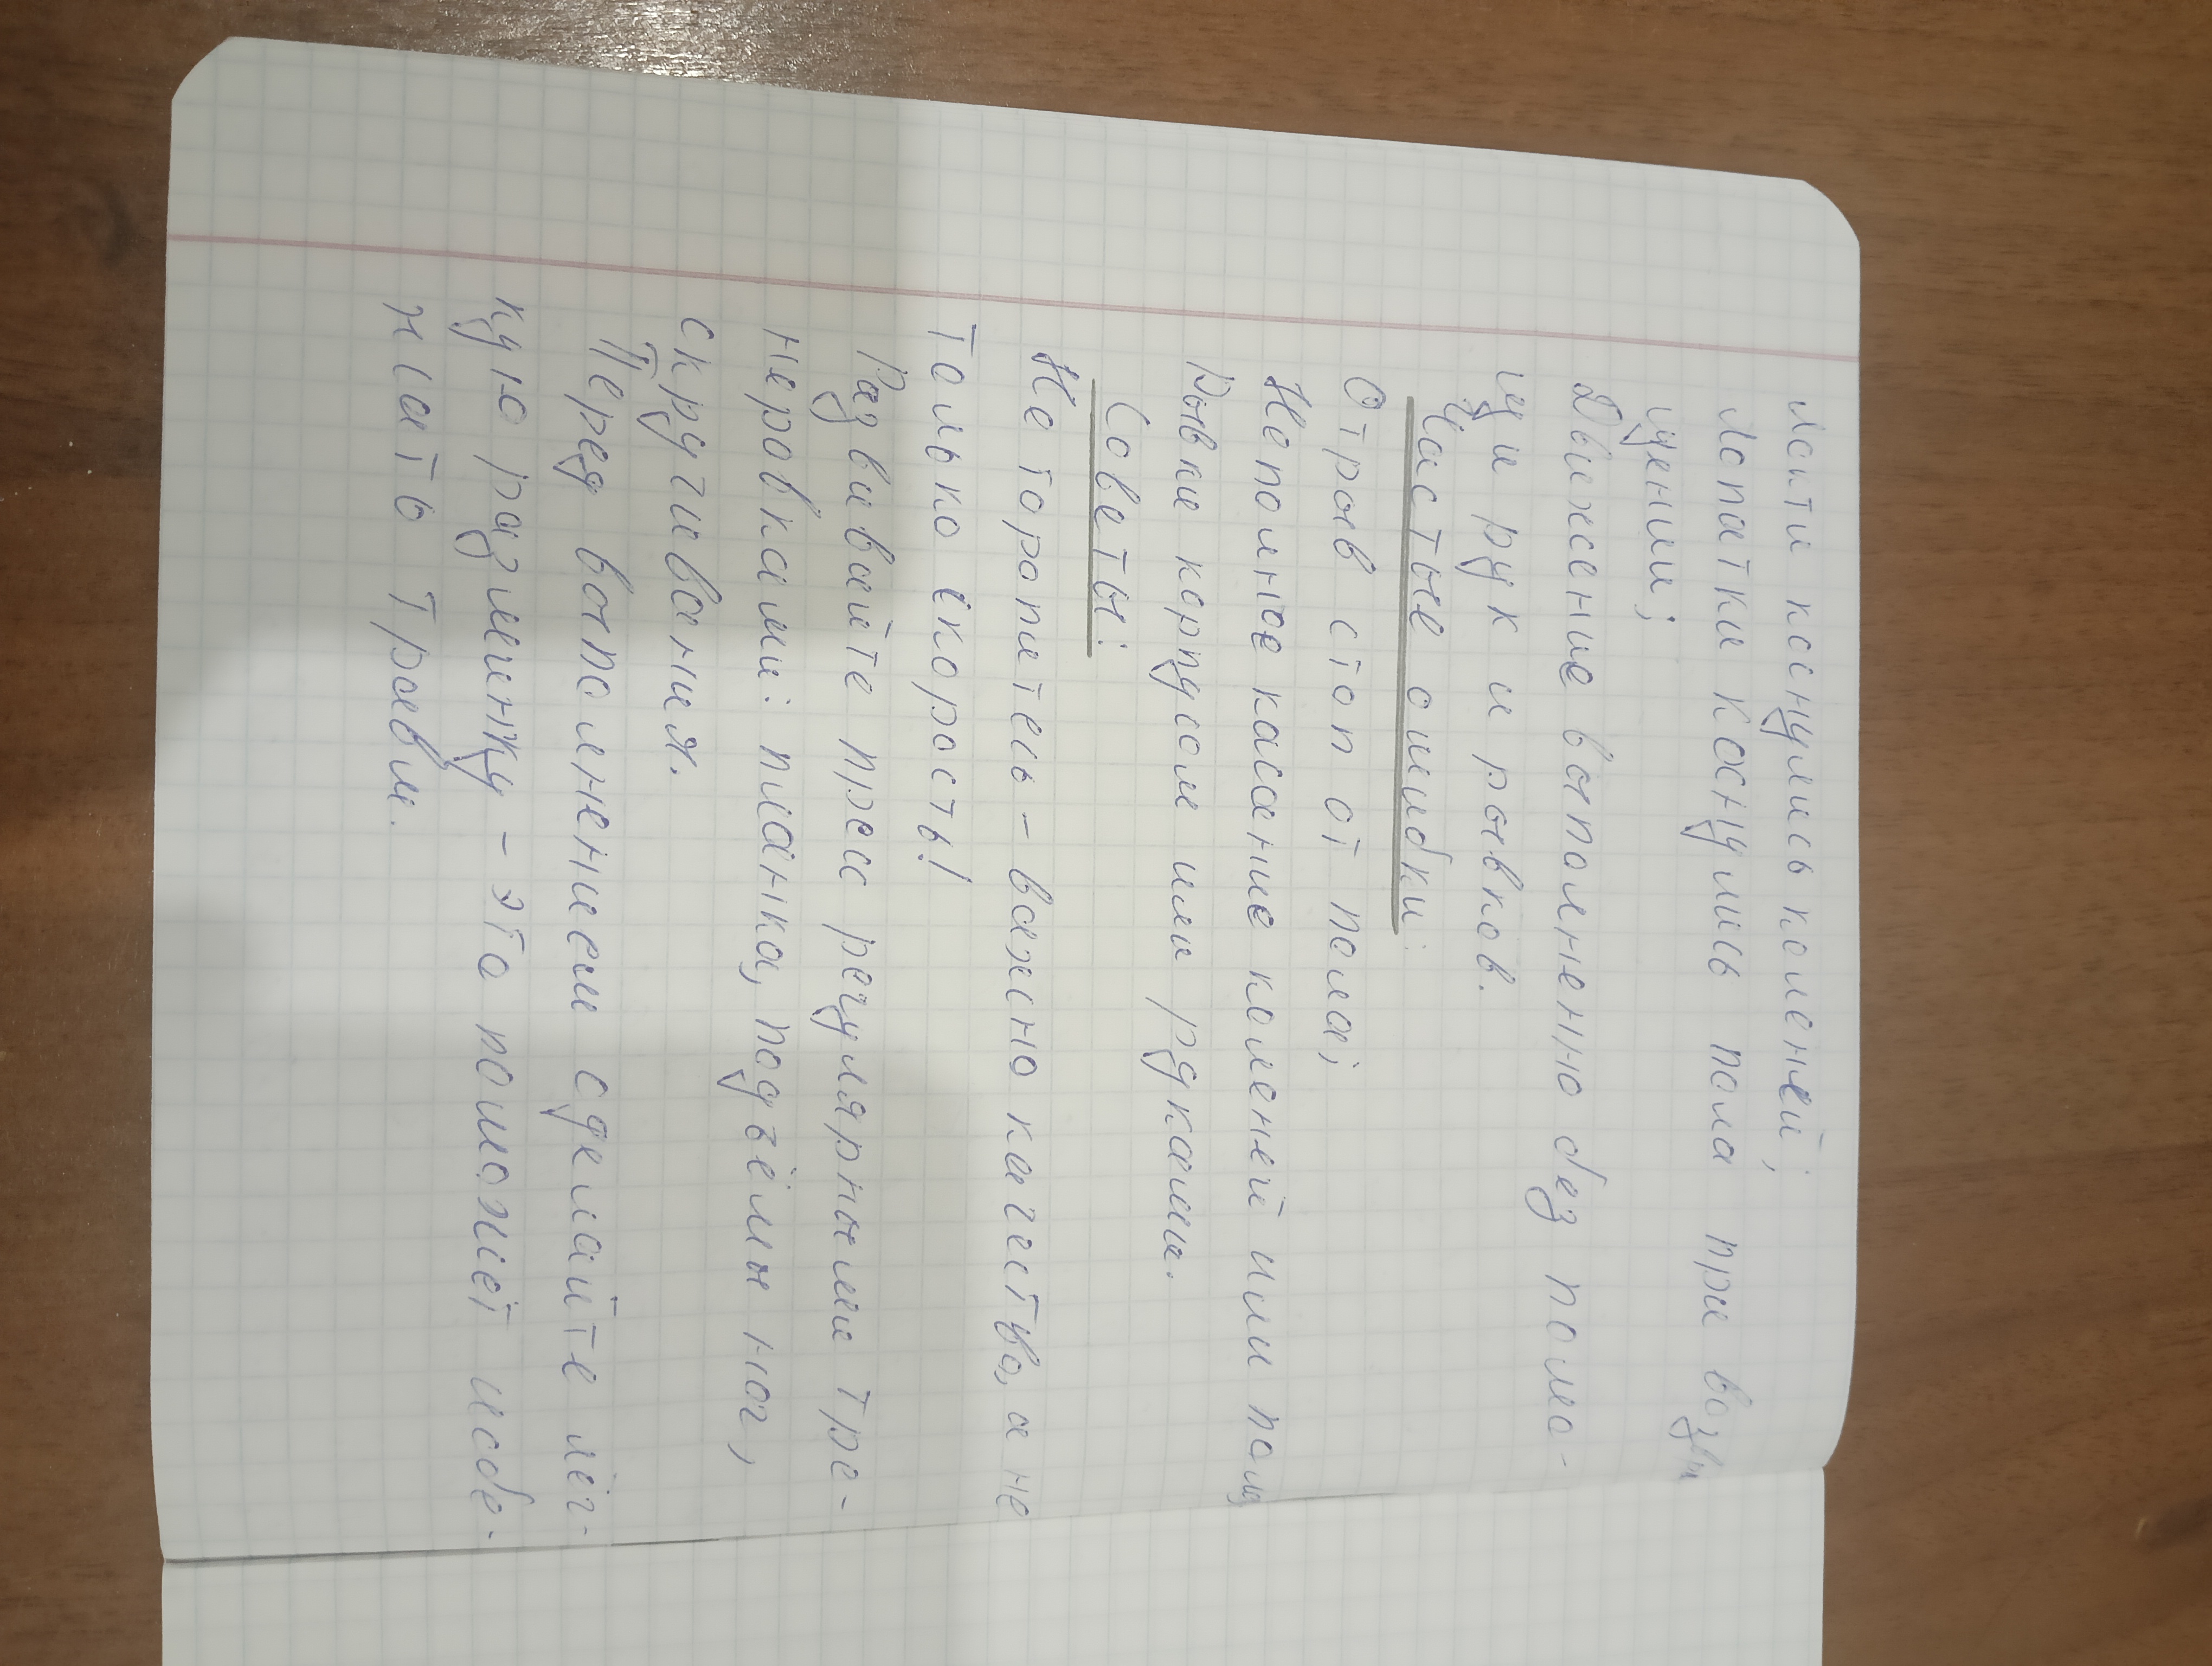 локти коснулись коленей;
Лопатки коснулись пола при возвра
щении;
Движение выполненно без помо-
щи рук и рывков.
Частые ошибки:
Отрыв стоп от пола;
Неполное касание коленей или пола
Рывки корпусом или руками.
Советы:
Не торопитесь - важно качество, а не
только скорость!
Развивайте пресс регулярными тре-
нировками: планка, подъёмы ног,
скручивания.
Перед выполнением сделайте лёг-
кую разминку - это поможет избе-
жать травм.